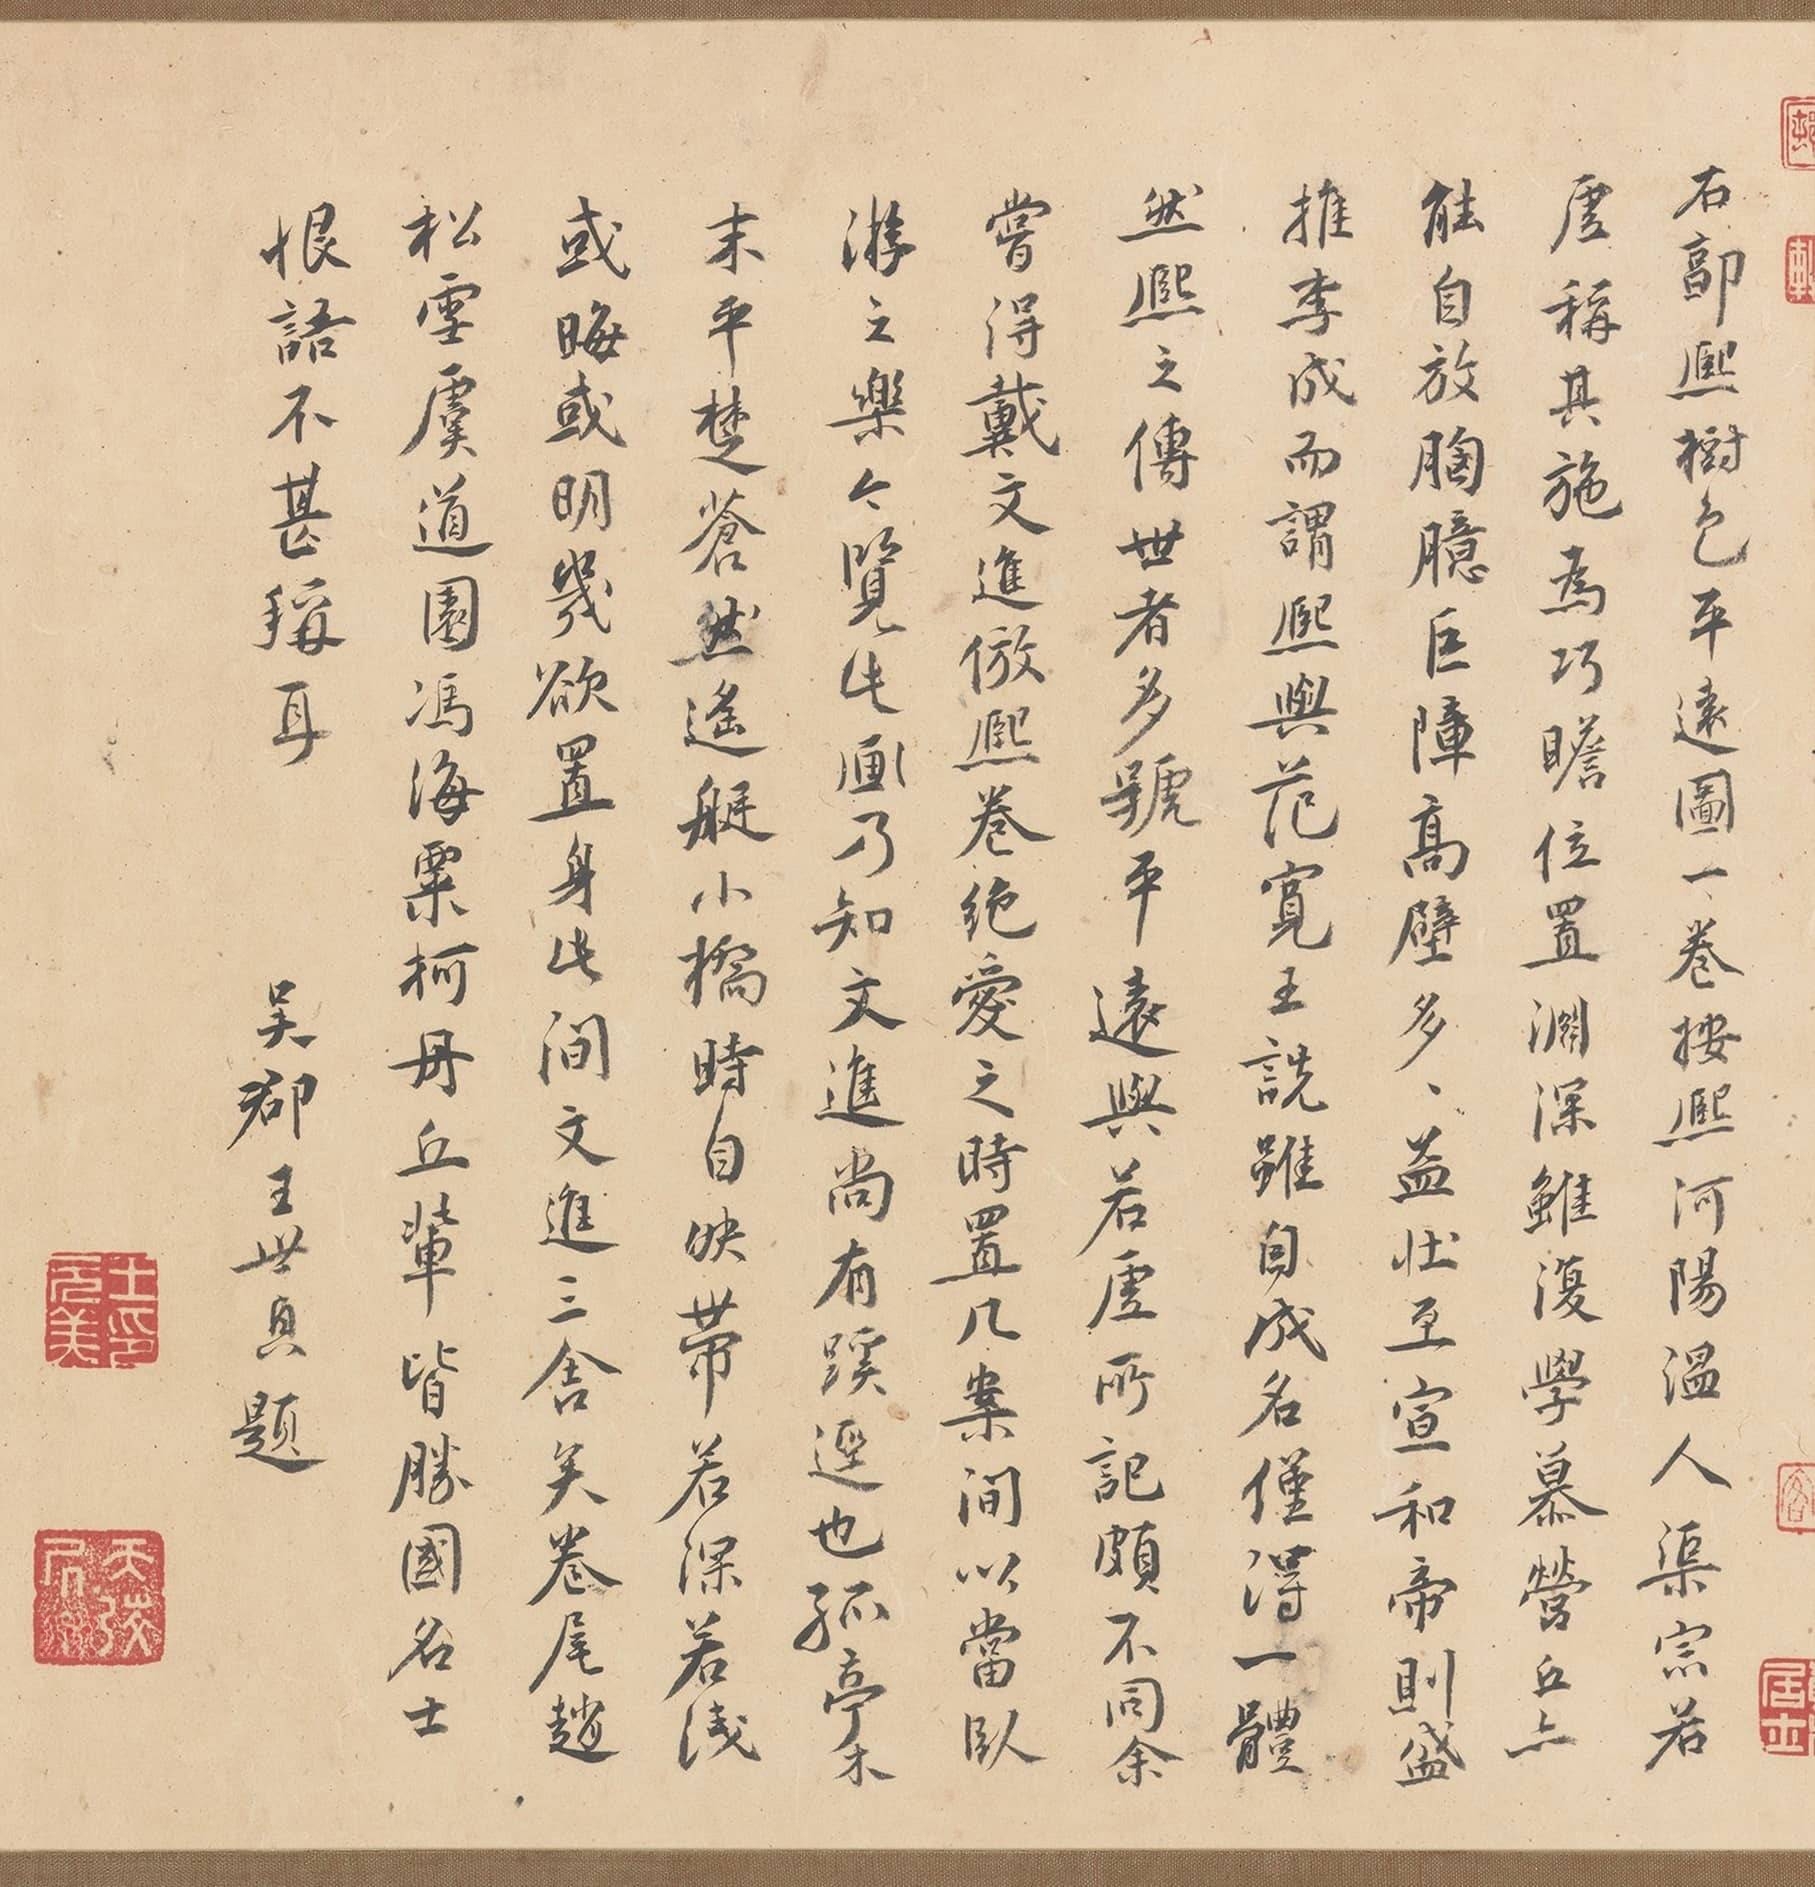 右郭熙樹色平遠圖一卷按熙河陽溫人渠宗若
虛稱其施為巧贍位置淵深雖復學慕營丘亦
能自放胸臆巨障高壁多〻益壯至宣和帝則盛
推李成而謂熙與范寬王詵雖自成名僅得一體
然熙之傳世者多號平遠與若虛所記頗不同余
嘗得戴文進倣熙卷絕愛之時置几案間以當臥
游之樂今覽此画乃知文進尚有蹊逕也孤亭木
末平楚蒼然遙艇小橋時自映帶若深若淺
或晦或明幾欲置身此間文進三舍矣卷尾趙
松雪虞道園馮海粟柯丹丘輩皆勝國名士
恨語不甚稱耳
吳郡王世貞題
王元美印
天弢居士